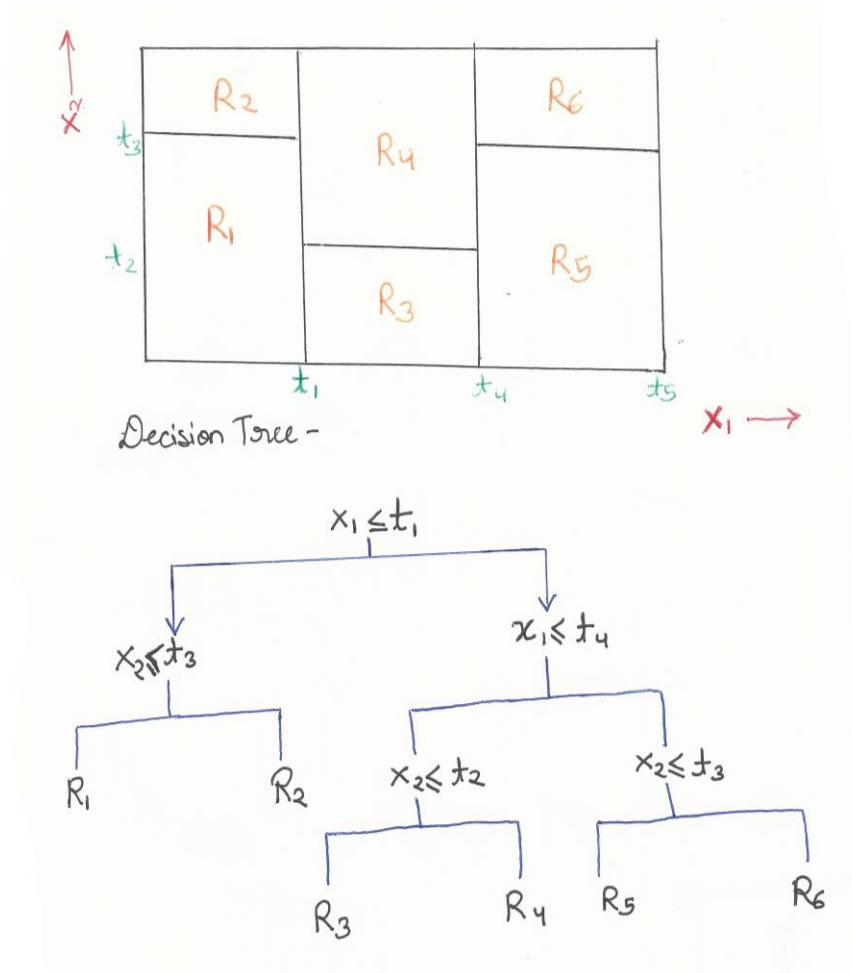 X2
R2
R6
t3
R4
R1
t2
R5
R3
t1
t4
t5
X1
Decision Tree -
x1 ≤ t1
x2 ≤ t3
x1 ≤ t4
R1
R2
x2 ≤ t2
x2 ≤ t3
R3
R4
R5
R6